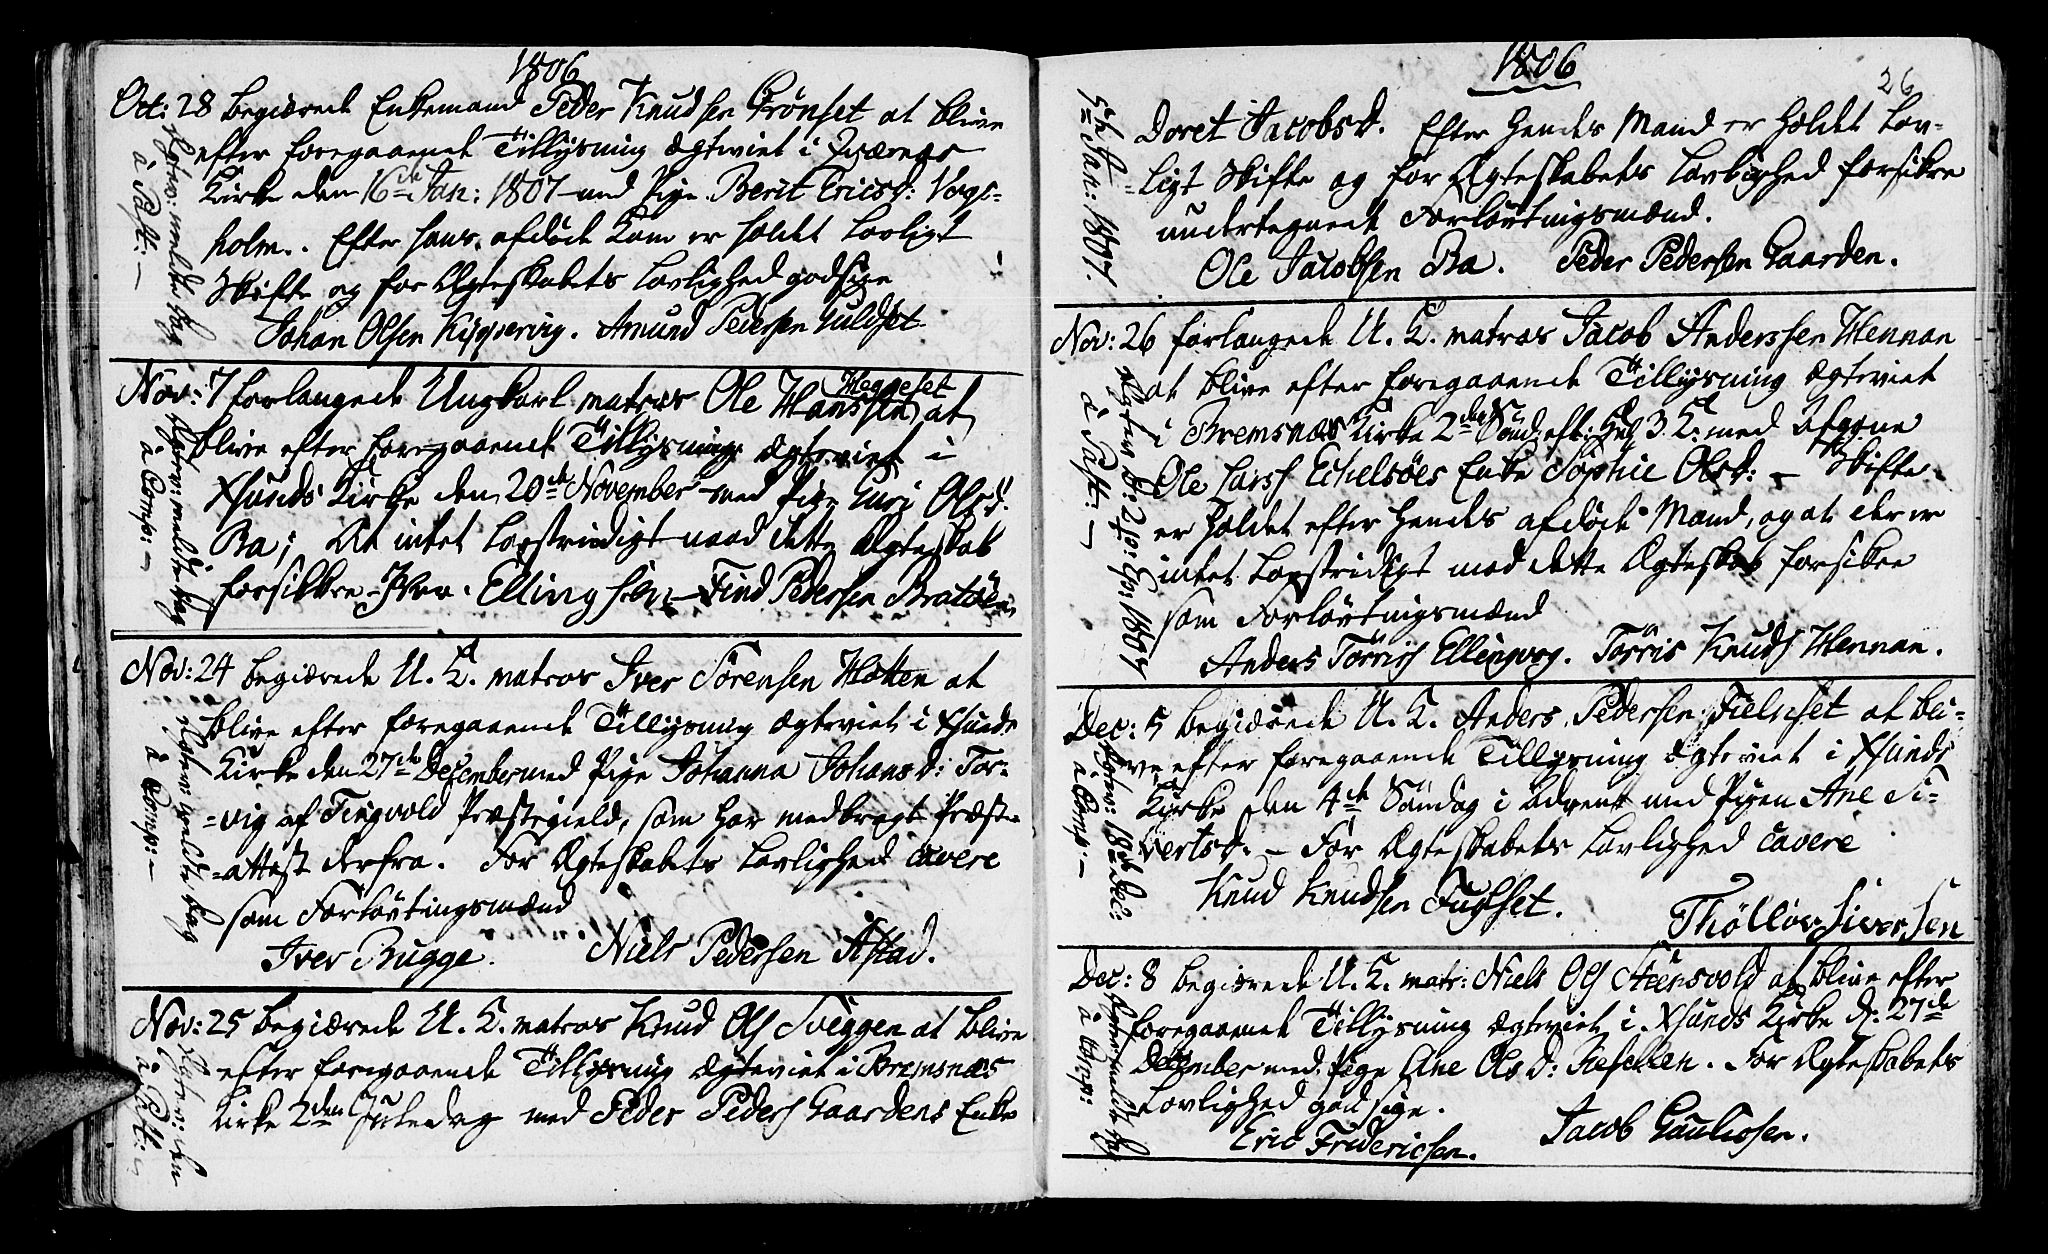 1806
Oct: 28 begiærede Enkemand Peder Knudsen Prönset at blive
efter foregaaende Tillysning ægteviet i Qværnes
Kirke den 16de Jan: 1807 med Pige Berit Ericsd: Vogs-
holm. Efter hans afdöde Kone er holdet Lovligt
Skifte og for Ægteskabets Lovlighed godsige
Johan Olsen Amund Pedersen Guldset
Ægtev: meldte Dag
à Patt: -
Nov: 7 forlangede Ungkarl matros Ole Hanssen Heggeset at
blive efter foregaaende Tillysning ægteviet i
Xsunds Kirke den 20de November med Pige Guri Olsd:
Ba; At intet Lovstridigt mod dette Ægteskab
forsikkre Iver Ellingsen Find Pedersen Bratöen
Ægtev: meldte Dag
à Comp: -
Nov: 24 begiærede U. K. matros Iver Sörensen Hatten at
blive efter foregaaende Tillysning ægteviet i Xsunds
Kirke den 27de December med Pige Johanna Johansd: Tor-
-vig af Tingvold Præstegield, som har medbragt Præste-
-attest derfra. For Ægteskabets Lovlighed cavere
som Forlovtningsmænd
Iver Brugge. Niels Pedersen Astad.
Ægtev: meldte Dag
à Comp: -
Nov: 25 begiærede U. K. matros Knud Ols Sveggen at blive
efter foregaaende Tillysning ægteviet i Bremsnæs
Kirke 2den Juledag med Peder Peders Gaardens Enke
Ægtev: den
à Patt: -
1806
26
Doret Jacobsd. Efter hendes Mand er holdet Lov-
-ligt Skifte og for Ægteskabets Lovlighed forsikre
undertegnede Forlovtningsmænd.
Ole Jacobsen Ba. Peder Pedersen Gaarden.
5te Jan: 1807.
Nov: 26 forlangede U. K. matros Jacob Anderssen Hennan
at blive efter foregaaende Tillysning ægteviet
i Bremsnæs Kirke 2den Sönd: eft: Hel: 3 K: med afgane
Ole Larss Echelsöes Enke Sophie Olsd: - Skifte
er holdet efter hendes afdöde Mand, og at der er
intet Lovstridigt mod dette Ægteskab forsikre
som Forlovtningsmænd
Anders Törriss Ellingvog. Törris Knuds Hennan.
1807
à Patt: -
Dec: 5 begiærede U. K. Anders Pedersen Fielsset at bli-
ve efter foregaaende Tillysning ægteviet i Xsunds
Kirke den 4de Söndag i Advent med Pigen Ane Si-
vertsd. - For Ægteskabets Lovlighed cavere
Knud Knudsen Fugset. Thöllov Siversen
Ægtev: 18de Dec:
à Comp: -
Dec: 8 begiærede U. K. matr: Niels Ols Steensvold at blive efter
foregaaende Tillysning ægteviet i Xsunds Kirke d: 27de
December med Pige Ane Olsd: For Ægteskabets
Lovlighed godsige.
Eric Fridericsen. Jacob
Ægtev: meldte Dag
à Comp: